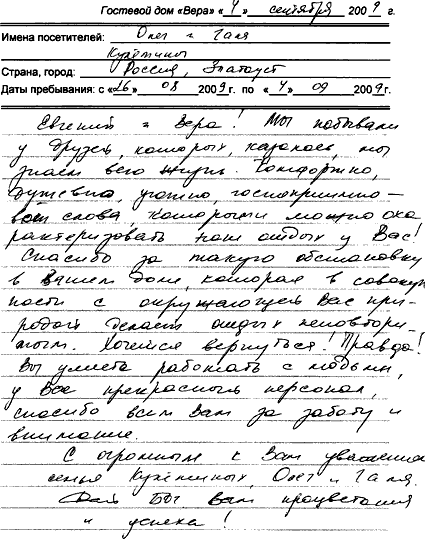 Гостевой дом «Вера» «4» сентября 2009 г.
Имена посетителей: Олег и Галя
Страна, город: Россия, Златоуст
Даты пребывания: с «26» 08 2009 г. по «4» 09 2009 г.
Евгений и Вера! Мы побывали
у друзей которых, казалось, мы
знаем всю жизнь. Комфортно,
душевно, уютно, гостеприимно –
вот слова, которыми можно оха
рактеризовать наш отдых у Вас!
Спасибо за такую обстановку
в Вашем доме, которая в совокуп
ности с окружающей Вас при-
родой делает отдых неповтори-
мым. Хочется вернуться! Правда!
Вы умеете работать с людьми,
у Вас прекрасный персонал,
спасибо всем Вам за заботу и
внимание.
С огромным к Вам уважением
семья Олег и Галя.
Дай Бог Вам процветания
и успеха!